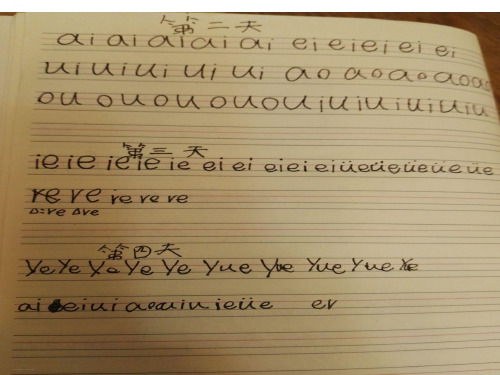 第二天
ai ai ai ai ai ei ei ei ei ei
ui ui ui ui ui ao ao ao ao ao
ou ou ou ou ou iu iu iu iu iu
第三天
ie ie ie ie ie ei ei ei ei ei üe üe üe üe üe
re re re re re
第四天
Ye Ye Ye Ye Ye Yue Yue Yue Yue Yue
ai ei ui ao ou iu ie üe er